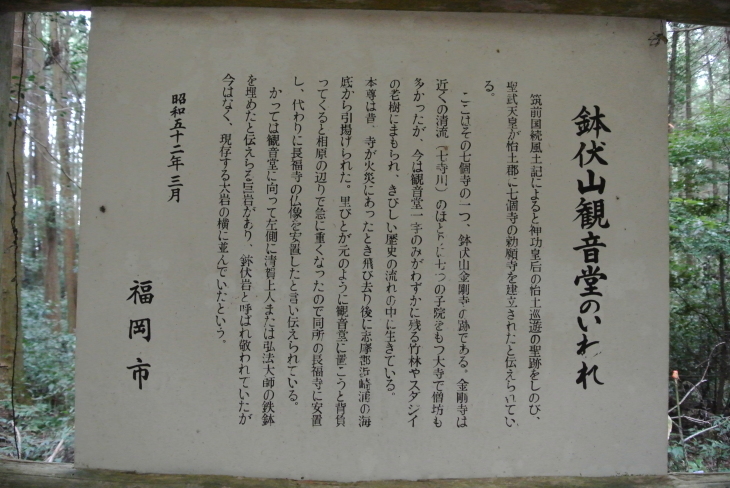 鉢伏山観音堂のいわれ
筑前国続風土記によると神功皇后の怡土巡遊の聖跡をしのび、
聖武天皇が怡土郡に七個寺の勅願寺を建立されたと伝えられてい
る。
ここはその七個寺の一つ、鉢伏山金剛寺の跡である。金剛寺は
近くの清流(七寺川)のほとりに七つの子院をもつ大寺で僧坊も
多かったが、今は観音堂一宇のみがわずかに残る竹林やスダジイ
の老樹にまもられ、きびしい歴史の流れの中に生きている。
本尊は昔、寺が火災にあったとき飛び去り後に志摩郡浜崎浦の海
底から引揚げられた。里びとが元のように観音堂に置こうと背負
ってくると相原の辺りで急に重くなったので同所の長福寺に安置
し、代わりに長福寺の仏像を安置したと言い伝えられている。
かっては観音堂に向って左側に清賀上人または弘法大師の鉄鉢
を埋めたと伝えらる巨岩があり、鉢伏岩と呼ばれ敬われていたが
今はなく、現存する大岩の横に並んでいたという。
昭和五十二年三月
福岡市